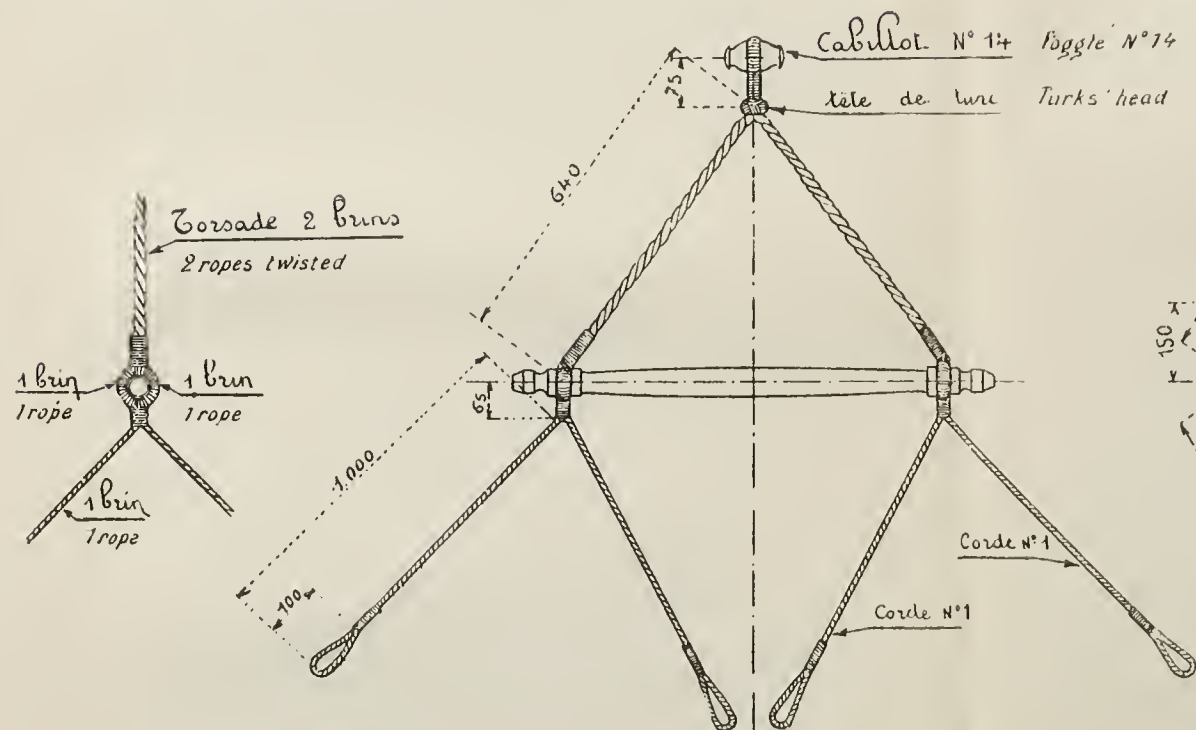 Cabillot N° 14 Toggle N° 14
75
tête de turc Turks' head
640
Torsade 2 brins
2 ropes twisted
150
1 brin
1 rope
1 brin
1 rope
65
1.000
1 brin
1 rope
Corde N° 1
100
Corde N° 1